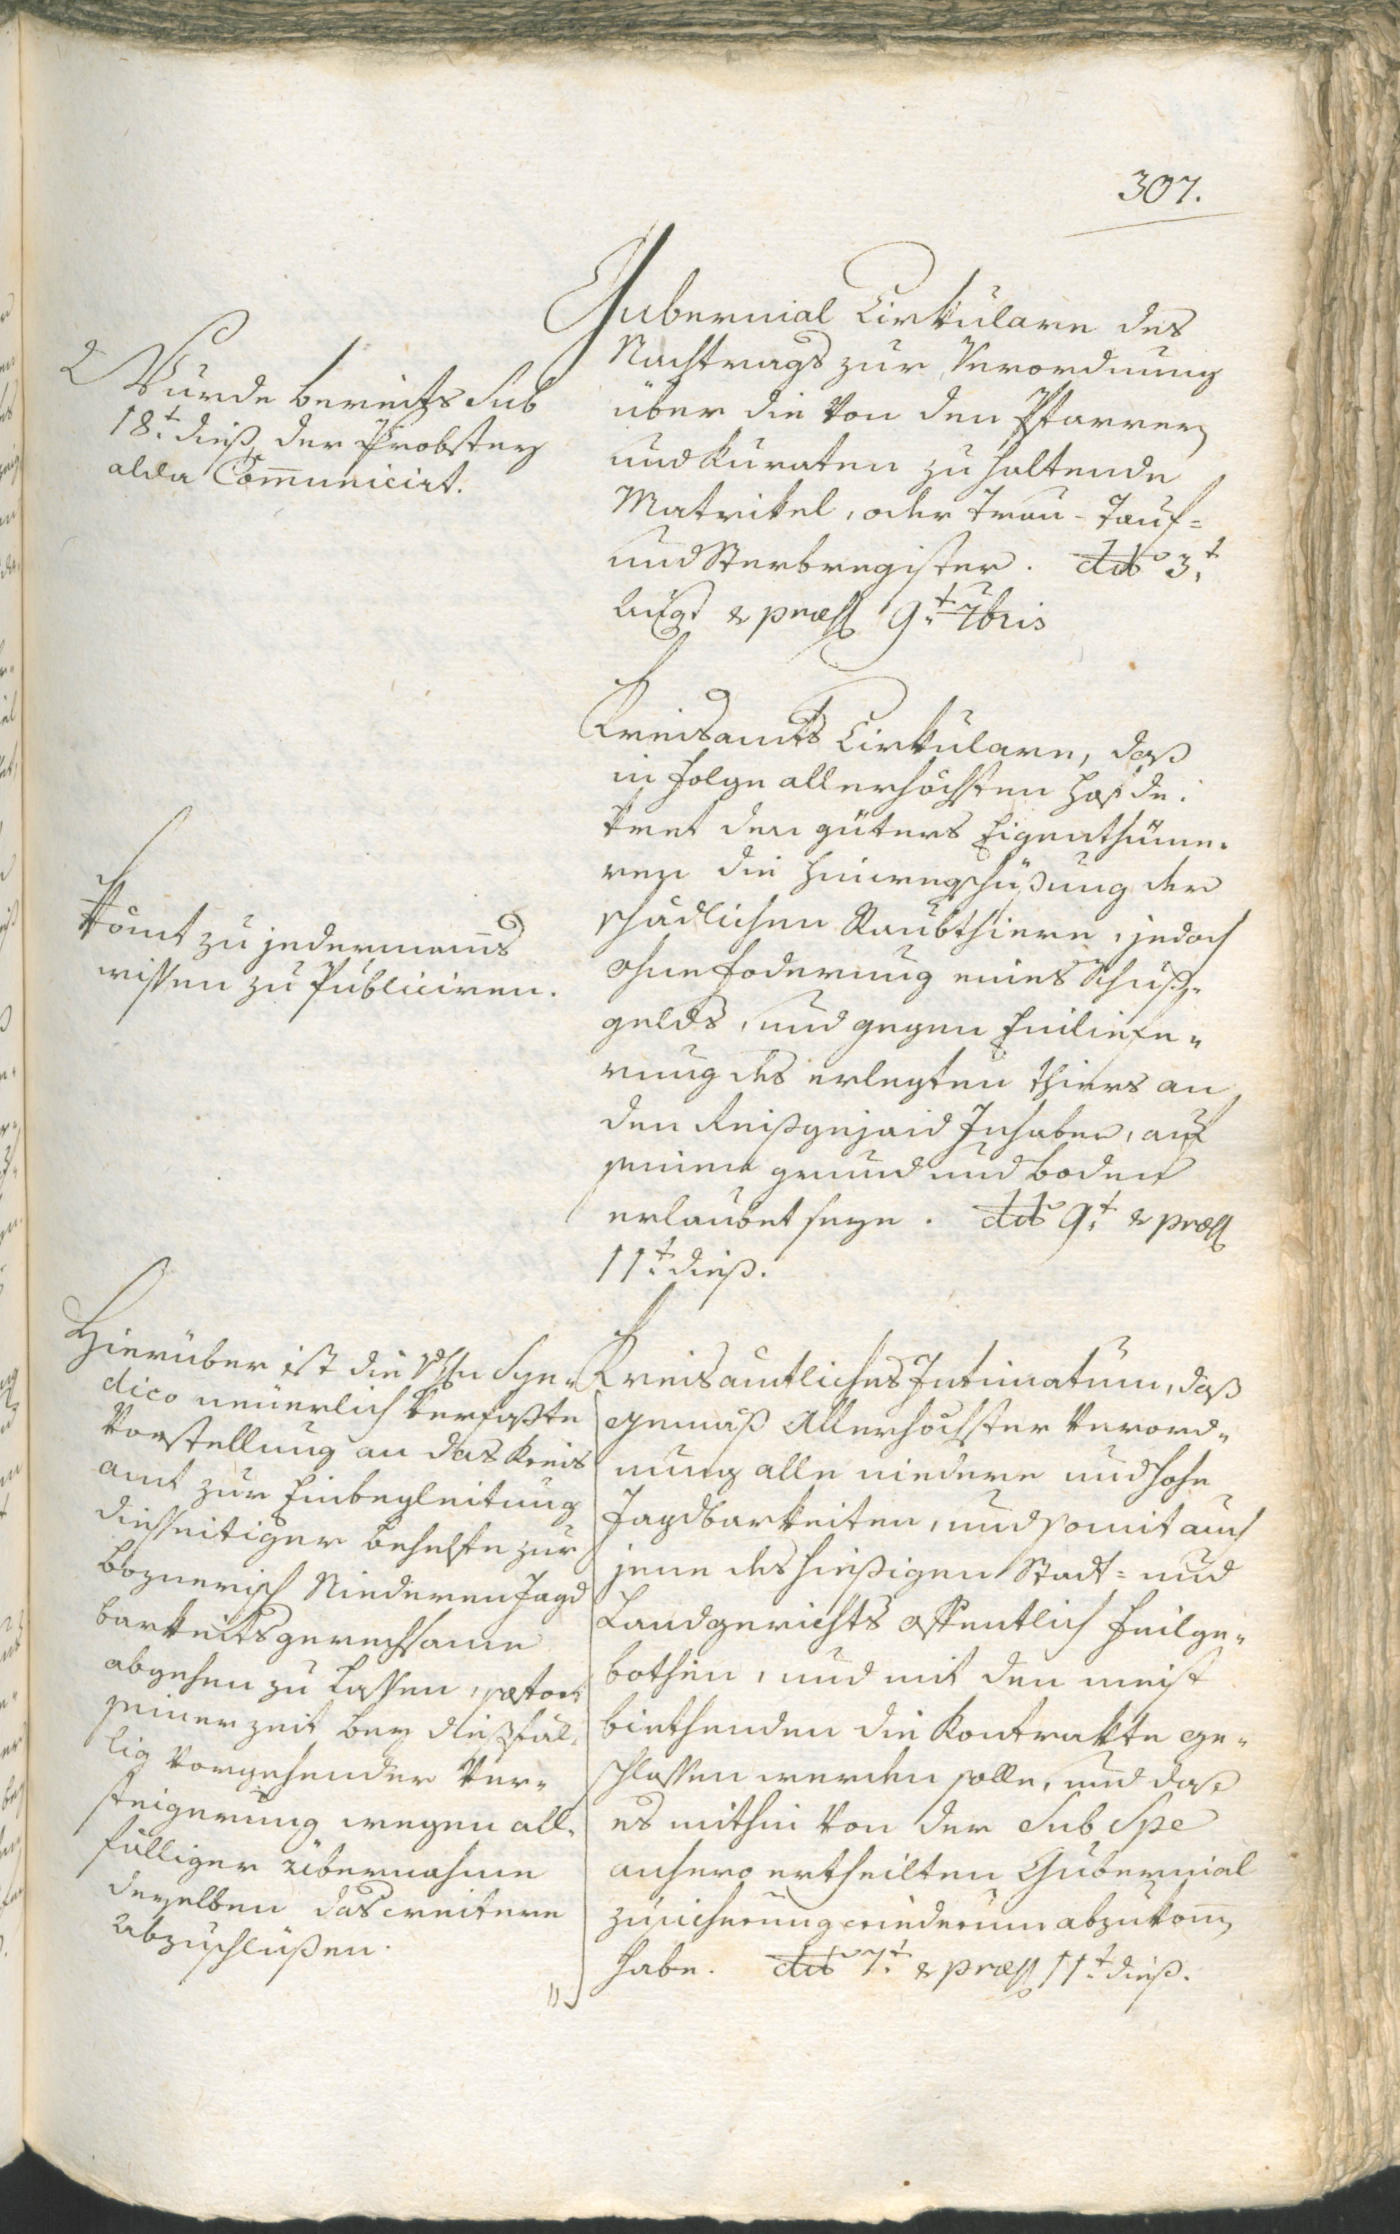 307.
Gubernial Cirkulare des
Nachtrags zur Verordnung
über die von den Pfarrern
und Kuraten zu haltende
Matrikel, oder Trau- Tauf=
und Sterbregister. ddo 3t
Augt & præss 9t 7bris
Wurde bereits sub
18t dieß der Probstey
alda Com̅unicirt.
Kreisamts Cirkulare, daß
in folge allerhöchsten Hofde¬
kret den güters Eigenthüme¬
ren die Hinwegschüßung der
schädlichen Raubthiere, jedoch
ohne foderung eines Schuß¬
gelds, und gegen Einliefe¬
rung des erlegten thiers an
den Reißgejaid Inhaber, auf
seinem grund und boden
erlaubet seye. ddo 9t & præss
11t dieß.
Kom̅t zu jedermanns
wissen zu Publiciren.
Kreisamtliches Intimatum, daß
gemäß Allerhöchster Verord¬
nung alle niedere und hohe
Jagdbarkeiten, und somit auch
jene des hießigen Stadt= und
Landgerichts öffentlich feilge¬
bothen, und mit den meist
biethenden die Kontrakte ge¬
schlossen werden solle, und daß
es mithin von der Sub Spe
anhero ertheilten Gubernial
zusicherung wiederum abzukom̅
habe. ddo 7t & præss 11t dieß.
Hierüber ist die Syn¬
dico neuerlich verfaßte
Vorstellung an das Kreis
amt zur Einbegleitung
diesseitiger behelfte zur
boznerisch Niederen Jagd
barkeitsgerechtsame
abgehen zu lassen,
seiner zeit bey dießfäl¬
lig vorgehender Ver¬
steigerung wegen all¬
fälliger übernahme
derselben das weitere
abzuschlüßen.